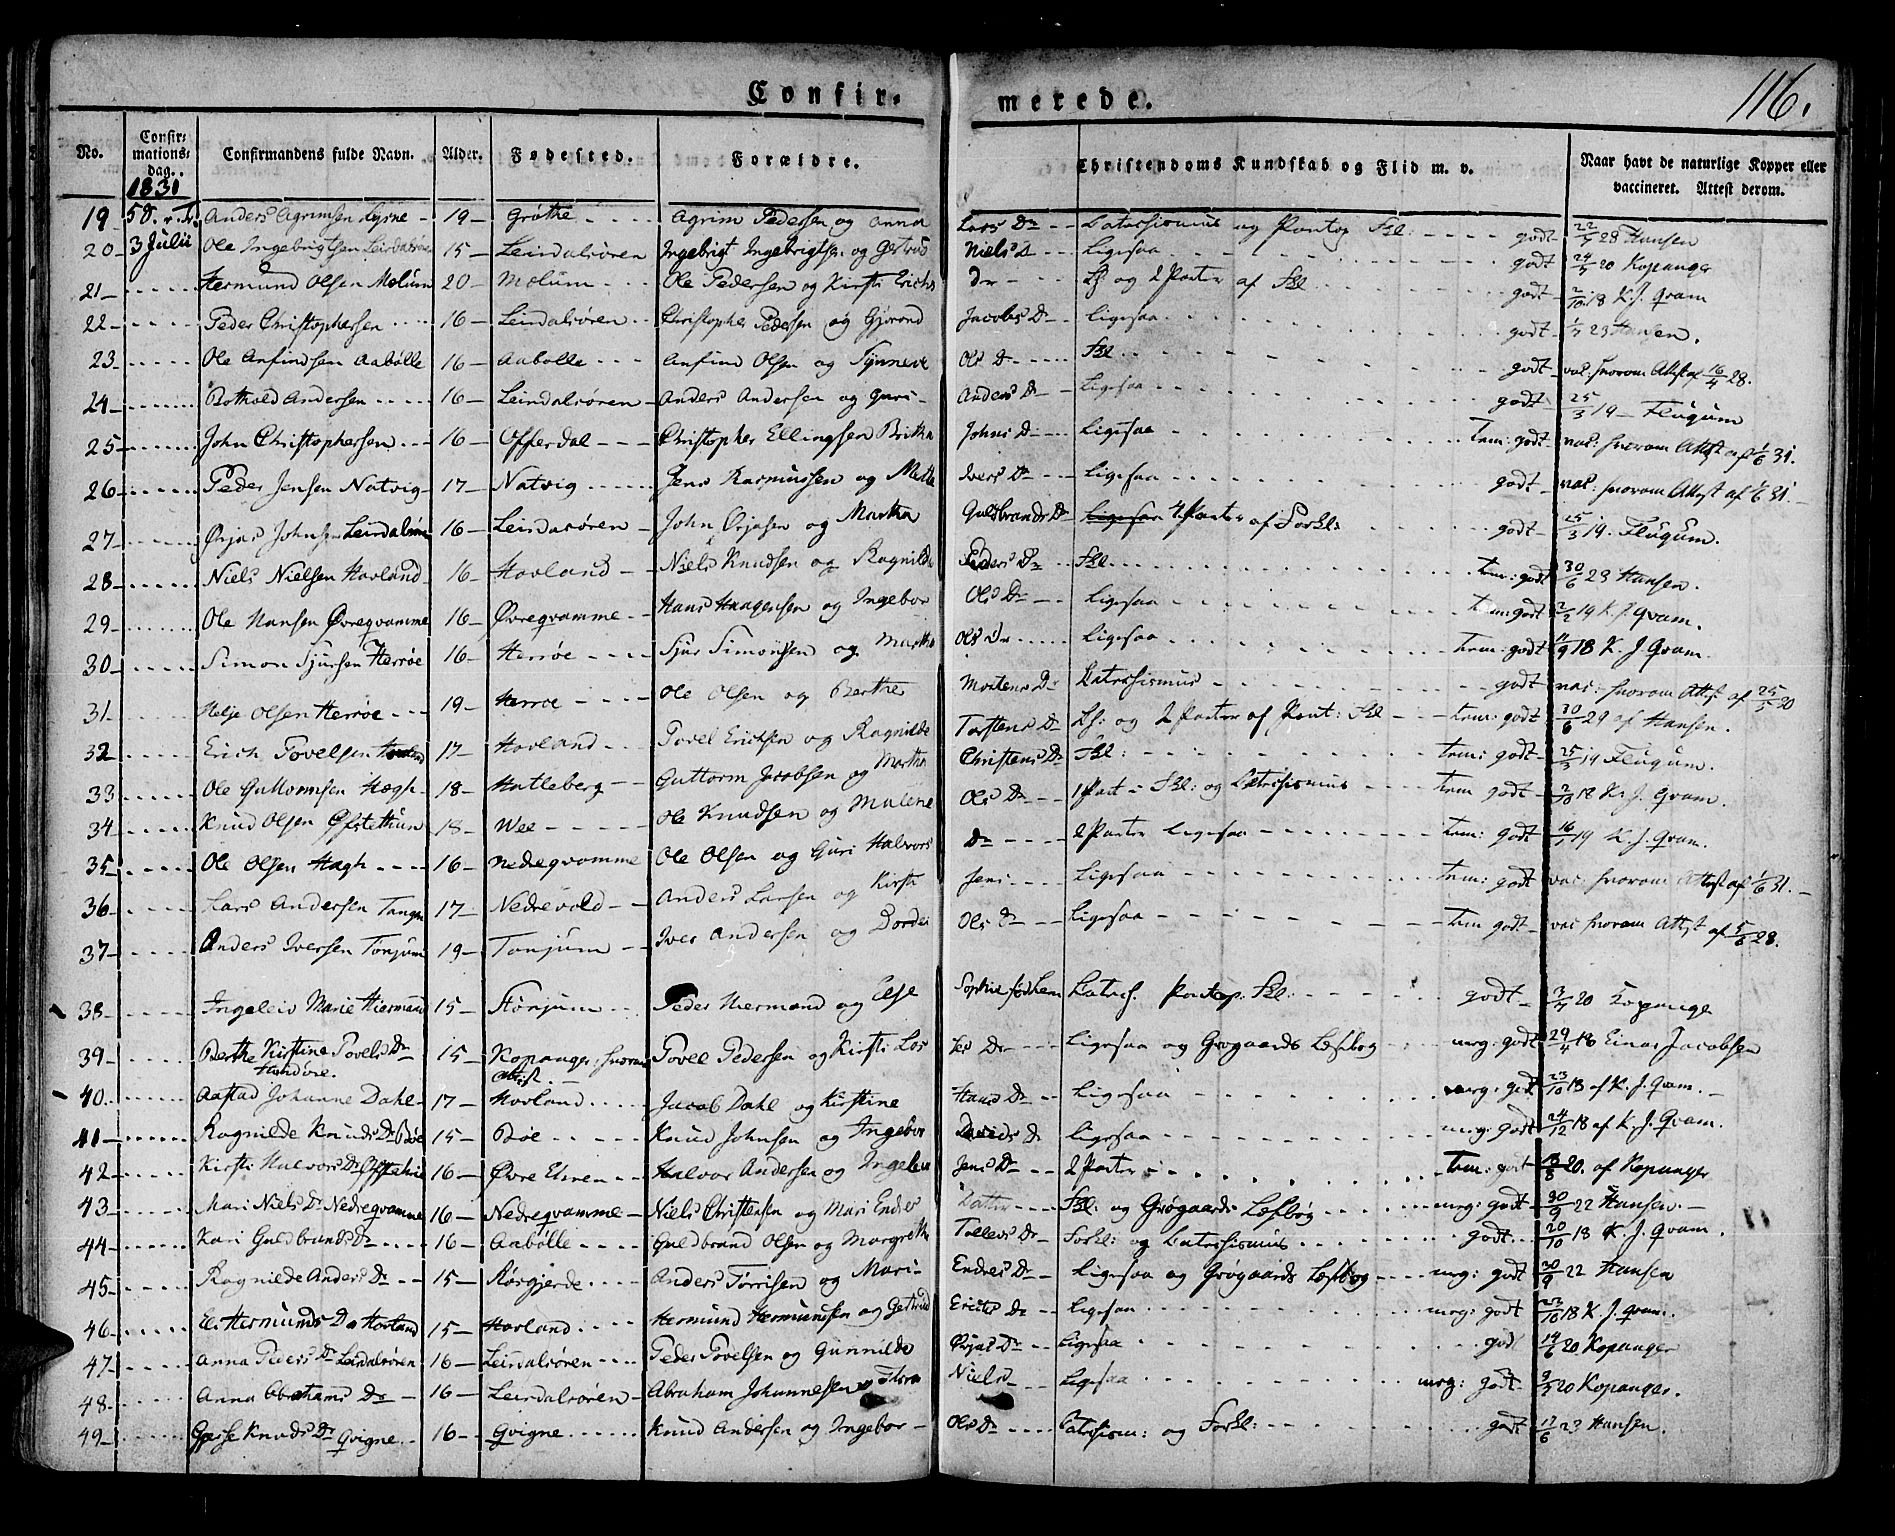 Confir- merede. 116.
No. Confir- mations- dag. Confirmandens fulde Navn. Alder. Fødested. Forældre. Christendoms Kundskab og Flid m. v. Naar havt de naturlige Kopper eller vaccineret. Attest derom.
1831
19 Anders Agrimsen Lysne - 19 - Grøthe Agrim Pedersen og Anna Lars Dr Catechismus og Pontop. Fkl: godt 28 Hansen
20 3 Julii Ole Ingebrigtsen 15 - Leirdalsøren Ingebrigt Ingebrigtsen og Gertrud Niels D Ligesaa godt 20 Kopanger
21 Hermund Olsen Molum 20 - Molum Ole Pedersen og Kirsti Erichs Dr og 2 Parter af Fkl godt 2/10 18 K. J. Qvam
22 Peder Christophersen 16 - Leirdalsøren Christopher Pedersen og Gjørond Jacobs D Ligesaa godt 23 Hansen.
23 Ole Anfindsen Aabølle 16 - Aabølle Anfind Olsen og Synneve Ols D Fkl. godt vac: hvorom Attest af 16/4 28.
24 Bothold Andersen 16 - Leirdalsøren Anders Andersen og Guri Anders D Ligesaa godt 25/3 19 - Flugum
25 John Christophersen 16 - Offerdal Christopher Ellingsen Britha Johns D Ligesaa tem: godt vac: hvorom Attest af 1/6 31.
26 Peder Jensen Natvig 17 - Natvig Jens Rasmussen og Mette Ivers D Ligesaa godt - vac: hvorom Attest af 1/6 31.
27 Ørjas Johnsen Leirdalsøren 16 - Leirdalsøren John Ørjasen og Martha Guldbrands D Ligesaa 4 Parter af Forkl: godt 25/3 19. Flugum.
28 Niels Nielsen Hovland 16 - Hovland Niels Knudsen og Ragnilde Peders Dr Fkl. tem: godt 30/6 23 Hansen.
29 Ole Hansen Øvreqvamme 16 - Øvreqvamme Hans Haagensen og Ingebor Ols Dr Ligesaa tem: godt 2/2 19 K. J. Qvam.
30 Simon Sjursen Herrøe 16 - Herrøe Sjur Simonsen og Martha Ols Dr Ligesaa tem: godt 11/9 18 K. J. Qvam.
31 Helje Olsen Herrøe 19 - Herroe Ole Olsen og Berthe Mortens Dr Catechismus godt vac: hvorom Attest af 25/5 20
32 Erich Povelsen Hovland 17 - Hovland Povel Erichsen og Ragnilde Torstens D og 2 Parter af Pont: Fkl tem: godt 30/6 29 af Hansen.
33 Ole Guttormsen Hægh 18 - Hatleberg Guttorm Jacobsen og Martha Christens Dr Fkl: tem: godt 25/3 19 Flugum.
34 Knud Olsen Øfstethun 18 - Wee Ole Knudsen og Malene Ols Dr 1 Part - Fkl: og Catechismus tem godt 18 K. J. Qvam.
35 Ole Olsen Hagh 16 - Nedreqvamme Ole Olsen og Guri Halvors Dr 2 Parter Ligesaa tem: godt 19 K. J. Qvam.
36 Lars Andersen Tangen 17 - Nedrevold Anders Larsen og Kirsti Jens Ligesaa tem: godt vac: hvorom Attest af 1/6 31.
37 Anders Iversen Tonjum 19 - Tonjum Iver Andersen og Dordei Ols D Ligesaa tem godt vac hvorom Attest af 5/6 28.
38 Ingeleiv Marie Hiermand 15 - Størjum Peder Hiermand og Else Sophie Catech. Pontop. Fkl: godt 20 Kopanger
39 Berthe Kirstine Povels Dr 15 - Kopanger hvorom Attest. Povel Pedersen og Kirsti Dr Ligesaa og Grøgaards Læsebog mrg: godt 29/4 18 Einar Jacobsen
40 Aastad Johanne Dahl 17 - Hovland Jacob Dahl og Kirstine Hans Dr Ligesaa mrg: godt 23/10 18 af K. J. Qvam.
41 Ragnilde Knuds Dr Bøe 15 - Bøe Knud Johnsen og Ingebor Davids D Ligesaa mrg: godt 24/12 18 af K. J. Qvam.
42 Kirsti Halvors Dr 16 - Øvre Ehren Halvor Andersen og Ingeleiv Jens Dr 2 Parter tem: godt 20. af Kopanger
43 Mari Niels Dr Nedreqvamme 16 - Nedreqvamme Niels Christensen og Mari Endres Datter Fkl: og Grøgaards Læsebog mrg: godt 30/9 22 Hansen.
44 Kari Guldbrands Dr 16 - Aabølle Guldbrand Olsen og Margrethe Tollevs Dr Forkl: og Catechismus godt 20/10 18 K. J. Qvam.
45 Ragnilde Anders Dr 15 - Rørgjerde Anders Torrisen og Mari Endres D Ligesaa og Grøgaards Læsebog mrg: godt 30/9 22 Hansen
46 Hermunds Dr Hovland 15 - Hovland Hermund Hermundsen og Gertrud Erichs Dr Ligesaa mrg: godt 18 K. J. Qvam.
47 Anna Peders Dr Leirdalsøren 16 - Leirdalsøren Peder Povelsen og Gunnilde Ørjas Dr Ligesaa godt 14/6 20 Kopanger
48 Anna Abrahams Dr 16 - Leirdalsøren Abraham Johannesen og Thora Niels Ligesaa mrg: godt 20 Kopanger.
49 Knuds Dr Qvigne 16 - Qvigne Knud Andersen og Ingebor Ols Dr Catechism: og Forkl: godt 17/6 23 Hansen.